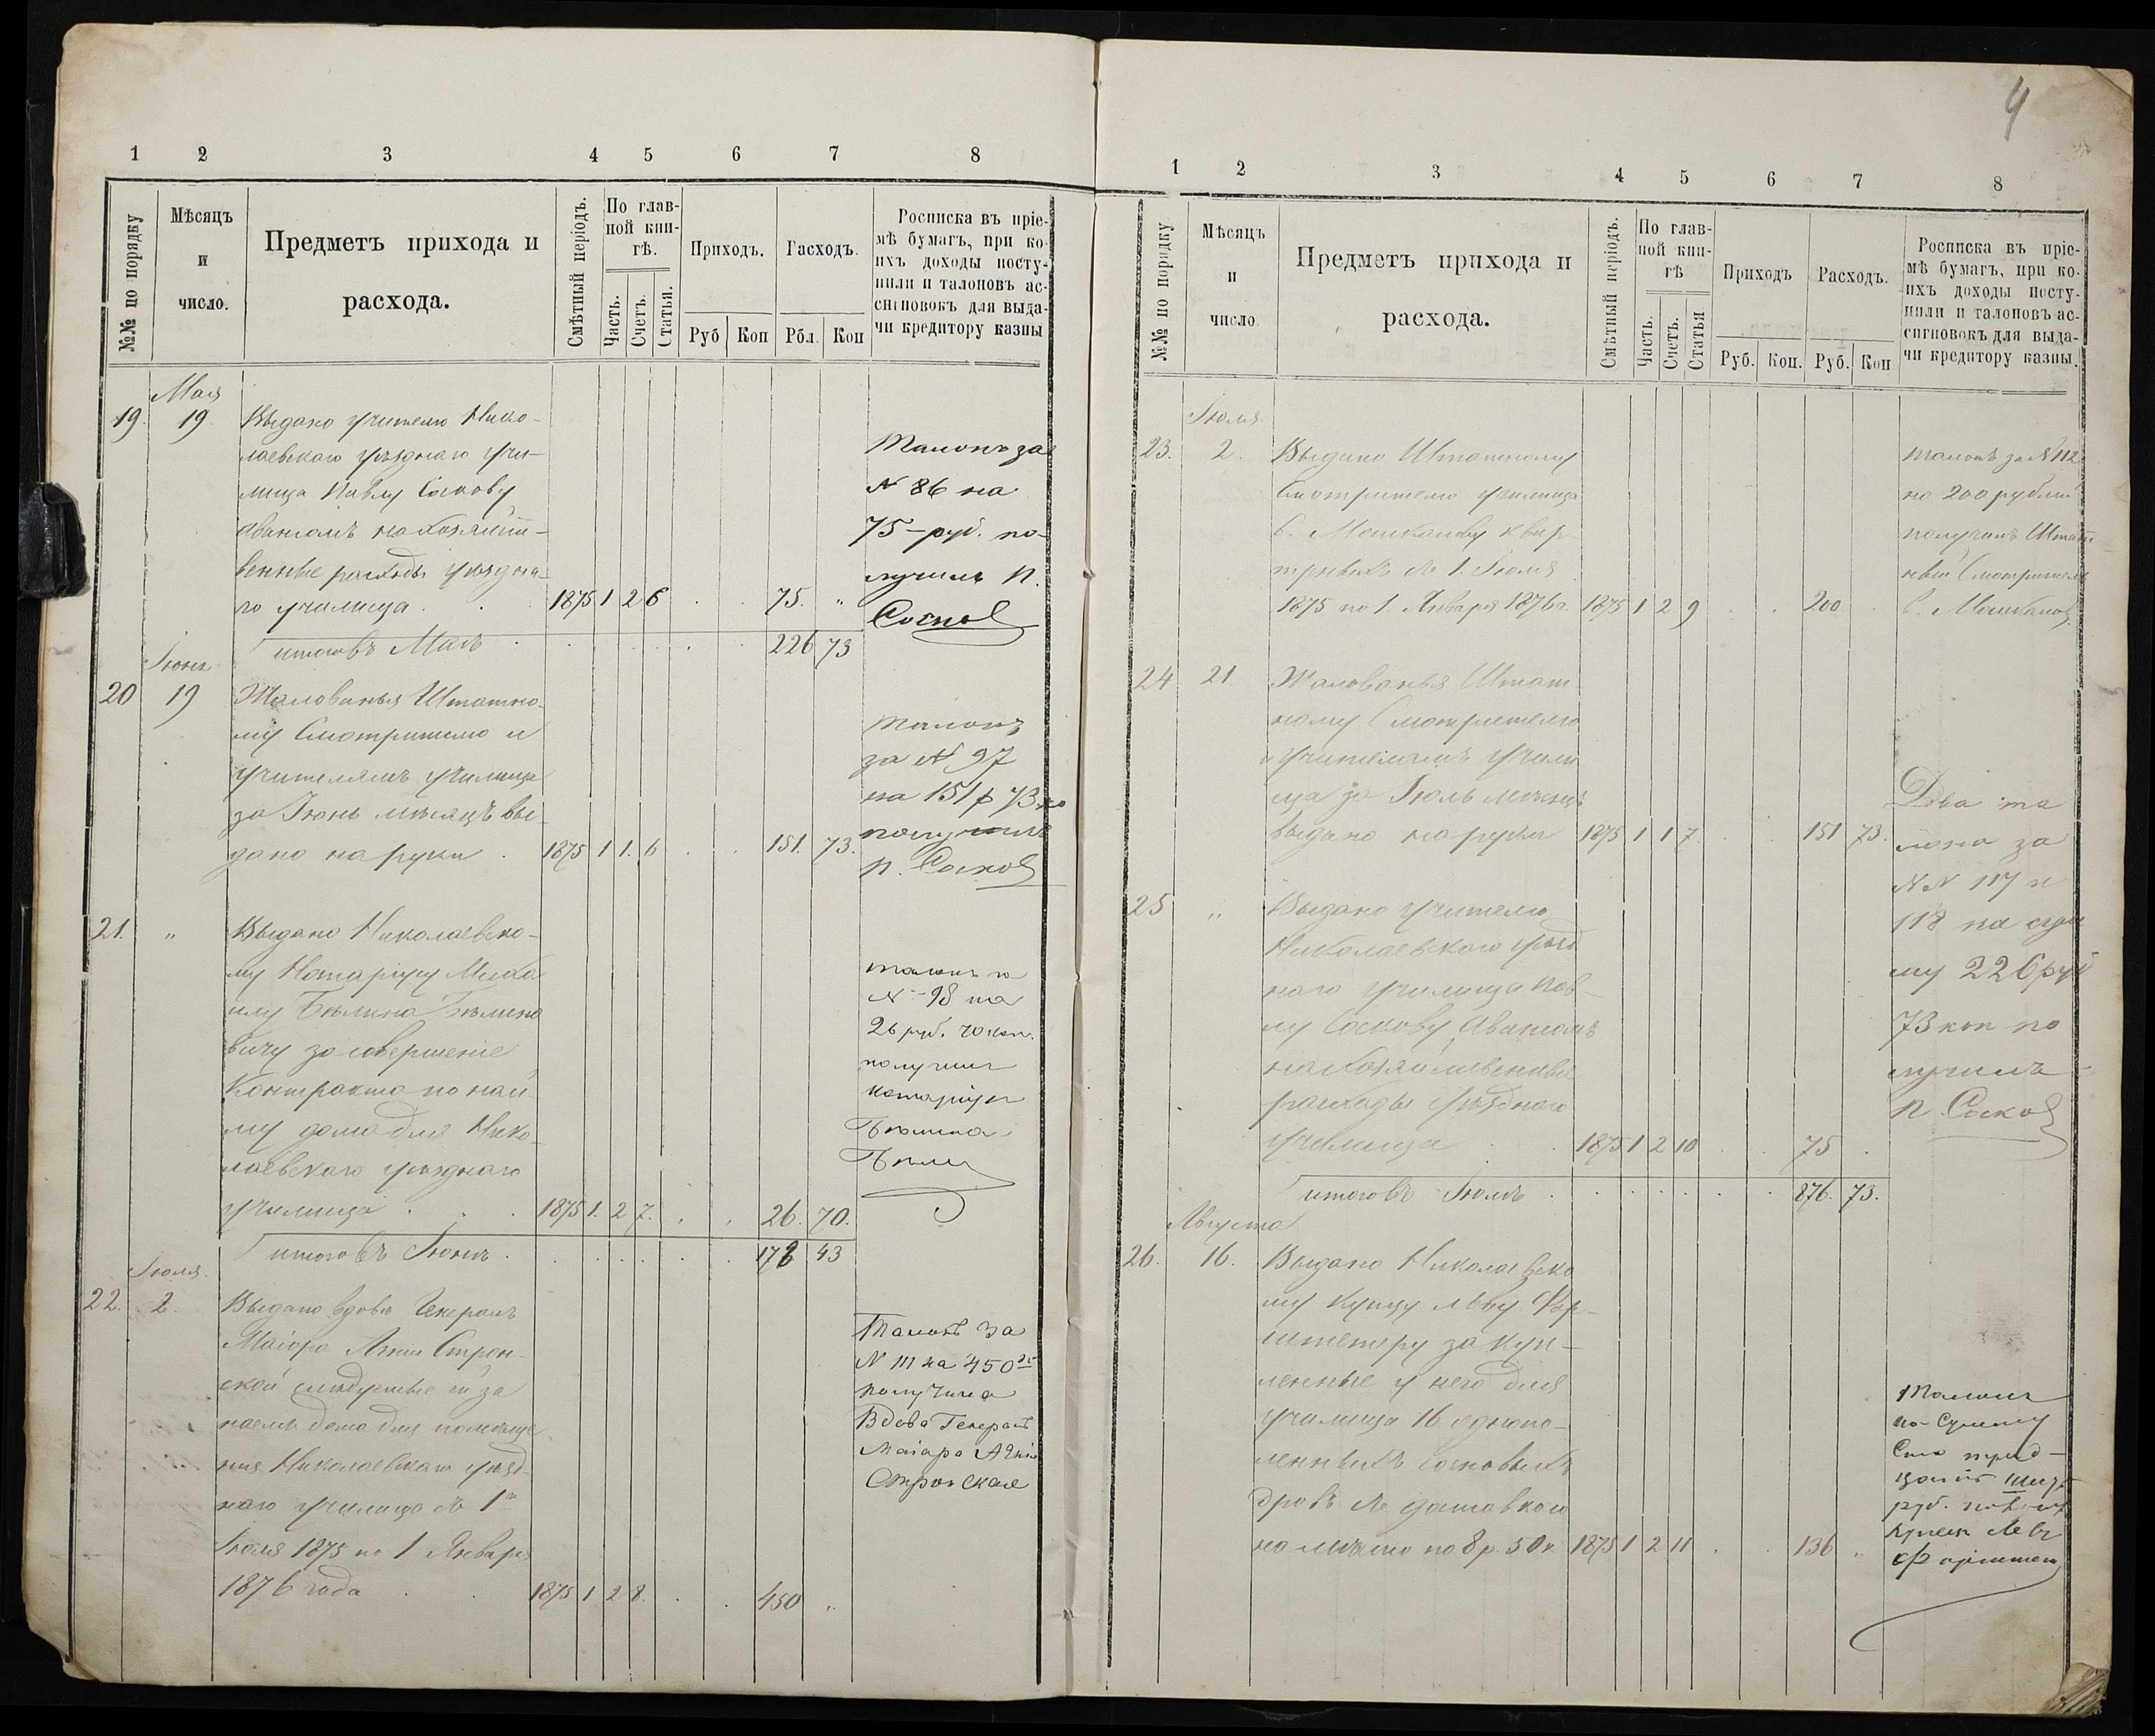 4
1 2 3 4 5 6 7 8
№№ по порядку
Мѣсяцъ
и
число.
Предметъ прихода и
расхода.
Смѣтный періодъ.
По глав-
ной кни-
гѣ.
Часть.
Счетъ.
Статья.
Приходъ.
Расходъ.
Руб Коп Рбл. Коп
Росписка въ пріе-
мѣ бумагъ, при ко-
ихъ доходы посту-
пили и талоновъ ас-
сигновокъ для выда-
чи кредитору казны
Мая
19. 19. Выдано учителю Нико-
лаевскаго уѣзднаго учи-
лища Павлу Соскову
авансомъ на хозяйст-
венные расходы уѣздна-
го училища. 1875 1 2 6 75. "
Талонъ за
№ 86 на
75-руб. по-
лучилъ П.
Сосковъ
итого въ Маѣ 226 73
Іюня
20 19 Жалованья Штатно-
му Смотрителю и
учителямъ училища
за Іюнь мѣсяцъ вы-
дано на руки . 1875 1 1. 6 151. 73.
талонъ
за № 97
на 151 р 73 ко
получилъ
П. Сосковъ
21. " Выдано Николаевско-
му Нотаріусу Миха
илу Бѣлина Бѣлино
вичу за совершеніе
Контракта по най
му дома для Нико-
лаевскаго уѣзднаго
училища . . . 1875 1. 2 7. 26. 70.
талонъ
№ 98 на
26 руб. 70 коп.
получилъ
нотаріусъ
Бѣлина
итого въ Іюнѣ . 178 43
Іюля.
22. 2. Выдано вдовѣ Генералъ
Маіора Аннѣ Строн-
ской слѣдуемые ей за
наемъ дома для помѣще
нія Николаевскаго уѣзд-
наго училища съ 1го
Іюля 1875 по 1 Января
1876 года . . 1875 1 2 8. 450 "
Талонъ за
№ 111 на 450
получила
Вдова Генералъ
Маіора Анна
Стронская
1 2 3 4 5 6 7 8
№№ по порядку
Мѣсяцъ
и
число.
Предметъ прихода и
расхода.
Смѣтный періодъ.
По глав-
ной кни-
гѣ
Часть.
Счетъ.
Статья
Приходъ
Расходъ.
Руб. Коп. Руб. Коп
Росписка въ пріе-
мѣ бумагъ, при ко-
ихъ доходы посту-
пили и талоновъ ас-
сигновокъ для выда-
чи кредитору казны.
Іюля.
23. 2. Выдано Штатному
Смотрителю училища
С. Машкалову квар-
тирныхъ съ 1. Іюля
1875 по 1. Января 1876 г. 1875 1 2 9 200
талонъ за № 112
на 200 рублей
получилъ Штат
ный Смотритель
С. Машкаловъ
24 21 Жалованья Штат
ному Смотрителю
и учителямъ учили
ща за Іюль мѣсяцъ
выдано на руки 1875 1 1 7. 151 73.
25 " Выдано учителю
Николаевскаго уѣзд
наго училища Пав-
лу Соскову авансомъ
на хозяйственные
расходы уѣзднаго
училища 1875 1 2 10 75 .
Два та
лона за
№№ 117 и
118 на сум
му 226 руб
73 коп по
лучилъ
П. Сосковъ
итого въ Іюлѣ . 876. 73.
Августа
26. 16. Выдано Николаевско
му купцу Льву Фор-
штетеру за куп-
ленные у него для
училища 16 однопо-
ленныхъ сосновыхъ
дровъ съ доставкою
на мѣсто по 8 р. 50 к 1875 1 2 11 136 "
Талонъ
на сумму
Сто трид-
цать шесть
руб. получ
купецъ Левъ